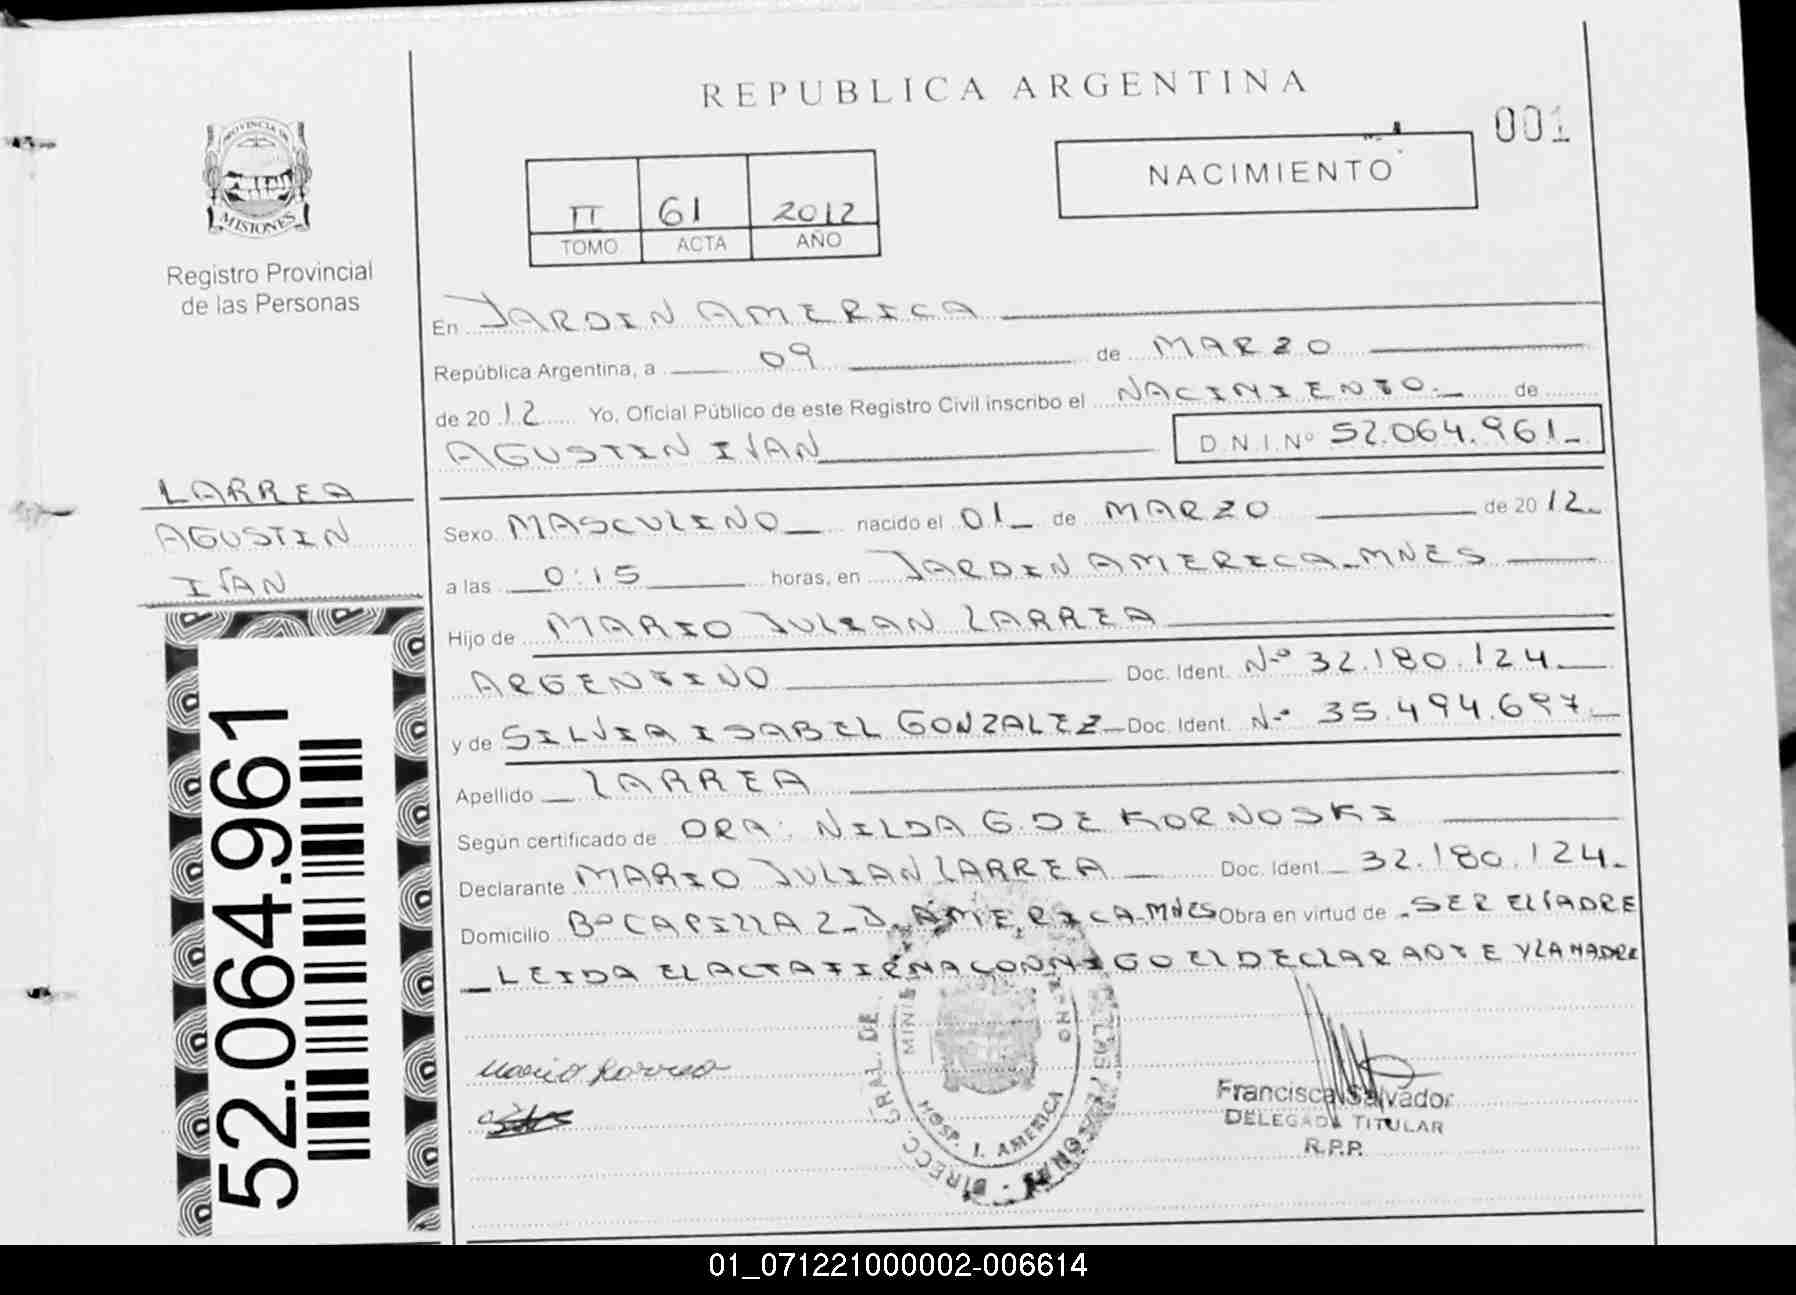 REPUBLICA ARGENTINA
001
NACIMIENTO
II 61 2012
TOMO ACTA AÑO
PROVINCIA DE
MISIONES
Registro Provincial
de las Personas
LARREA
AGUSTIN
IVAN
52.064.961
En JARDIN AMERICA
República Argentina, a 09 de MARZO
de 2012 Yo, Oficial Público de este Registro Civil inscribo el NACIMIENTO. de
AGUSTIN IVAN D.N.I.Nº 52.064.961
Sexo MASCULINO nacido el 01 de MARZO de 2012
a las 0:15 horas, en JARDIN AMERICA-MNES
Hijo de MARIO JULIAN LARREA
ARGENTINO Doc. Ident. Nº 32.180.124
y de SILVIA ISABEL GONZALEZ Doc. Ident. Nº 35.494.697
Apellido LARREA
Según certificado de DRA: NILDA G. DE KORNOSKI
Declarante MARIO JULIAN LARREA Doc. Ident. 32.180.124
Domicilio Bº CAPILLA 2-J. AMERICA-MNES Obra en virtud de SER EL PADRE
LEIDA EL ACTA FIRMA CONMIGO EL DECLARANTE Y LA MADRE
Mario Larrea
DIRECC. GRAL. DE
HOSP. J. AMERICA
Francisca Salvador
DELEGADA TITULAR
R.P.P.
01_071221000002-006614